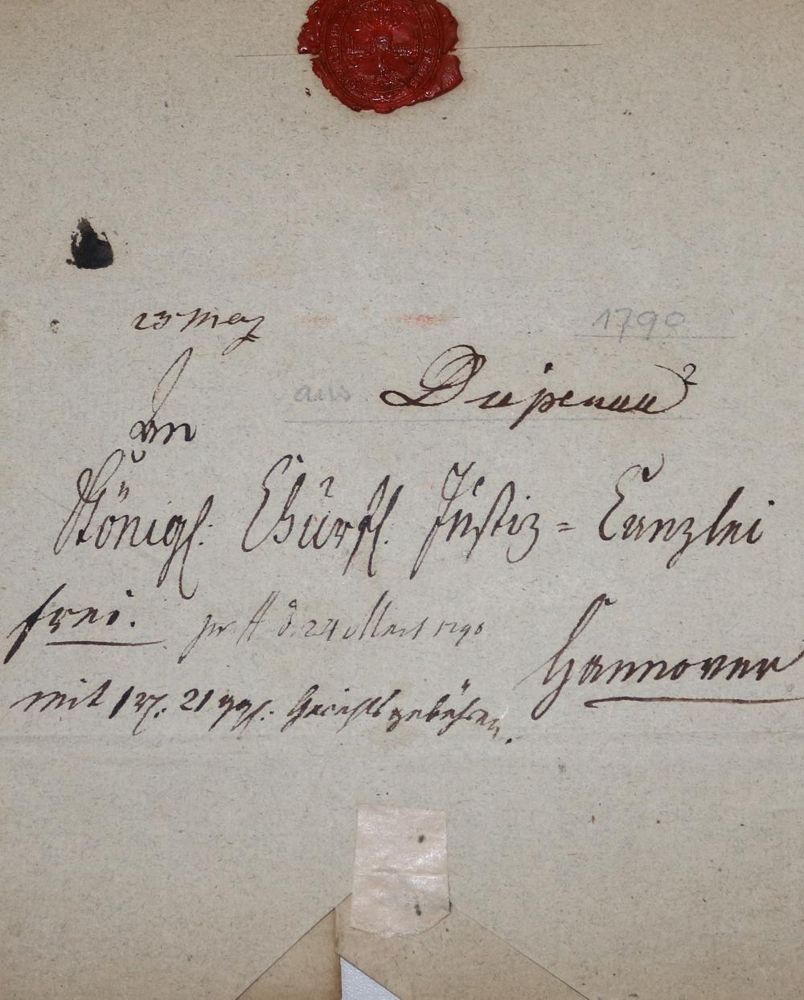 23 May 1790
aus Diepenau 2
An
Königl. Churfl. Justiz = Canzlei
frei. d. 24 May 1790
Hannover
mit 1 rh. 21 ggl. Gerichtsgebühren.